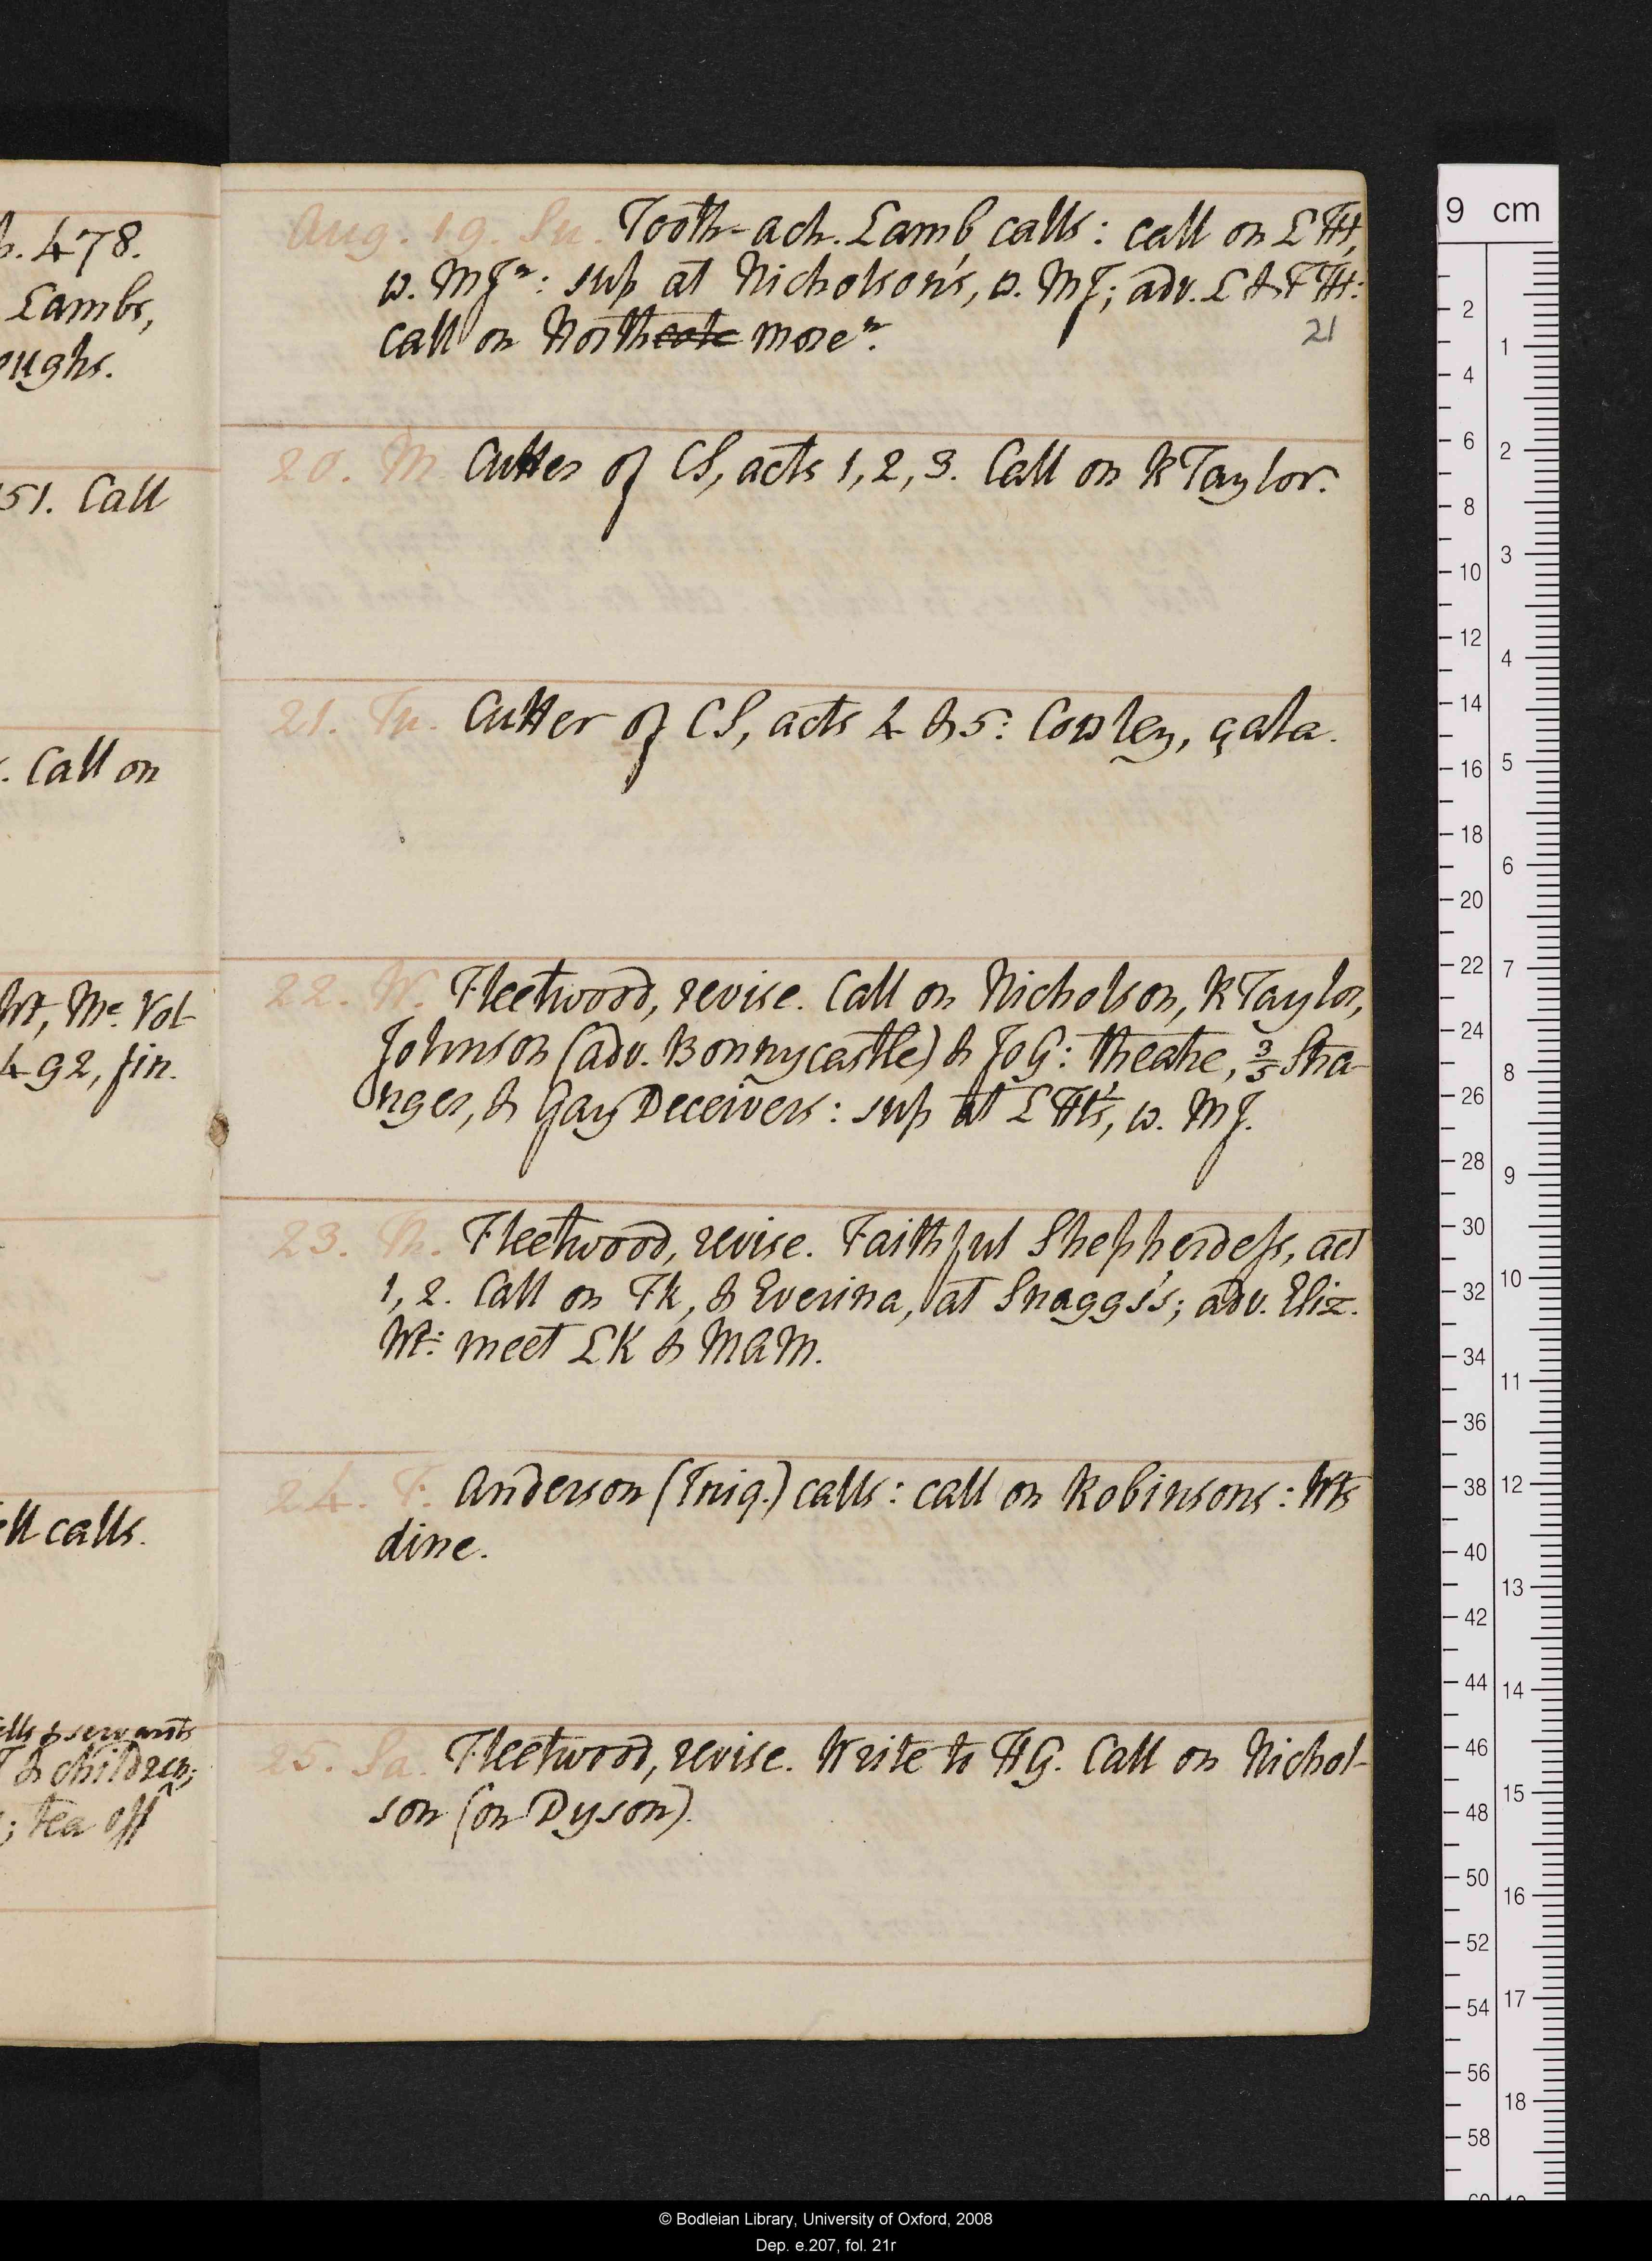 p. 478.
Lambs,
oughs.
51. Call
. Call on
Wt, Me. Vol-
492, fin.
ell calls.
& servants
& children;
; tea off
Aug. 19. Su. Tooth-ach. Lamb calls: call on L Ht,
w. MJn: sup at Nicholson's, w. MJ; adv. L & F Ht:
call on Northcote moren.
21
20. M Cutter of CS, acts 1, 2, 3. Call on R Taylor.
21. Tu. Cutter of CS, acts 4 & 5: Cowley, çala.
22. W. Fleetwood, revise. Call on Nicholson, R Taylor,
Johnson (adv. Bonnycastle) & JoG: theatre, 3/5 Stra-
nger, & Gay Deceivers: sup at L Ht's, w. MJ.
23. Th. Fleetwood, revise. Faithful Shepherdess, act
1, 2. Call on Fk, & Everina, at Snaggs's; adv. Eliz.
Wt: meet LK & MAM.
24. F. Anderson (Trig.) calls: call on Robinsons: Wts
dine.
25. Sa. Fleetwood, revise. Write to HG. Call on Nichol-
son (on Dyson).
9 cm
2
4
6
8
10
12
14
16
18
20
22
24
26
28
30
32
34
36
38
40
42
44
46
48
50
52
54
56
58
1
2
3
4
5
6
7
8
9
10
11
12
13
14
15
16
17
18
© Bodleian Library, University of Oxford, 2008
Dep. e.207, fol. 21r